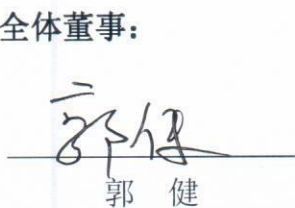 全体董事：
郭健
郭 健